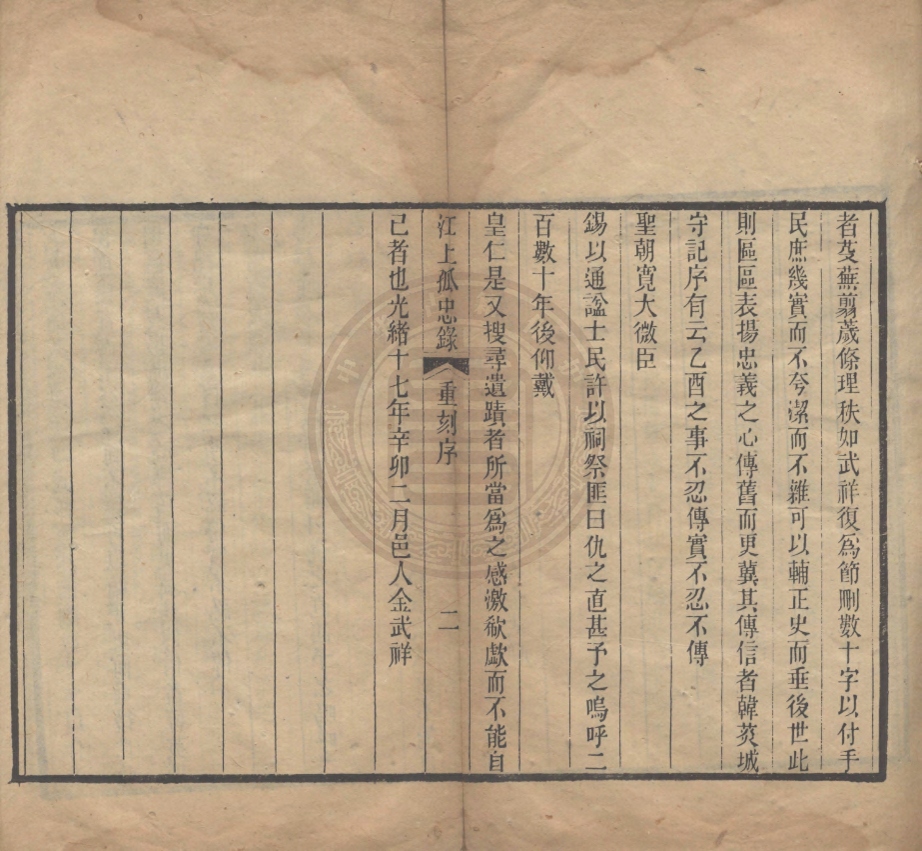 者芟蕪翦薉條理秩如武祥復爲節刪數十字以付手
民庶幾實而不夸潔而不雜可以輔正史而垂後世此
則區區表揚忠義之心傳舊而更冀其傳信者韓菼城
守記序有云乙酉之事不忍傳實不忍不傳
聖朝寬大微臣
錫以通諡士民許以祠祭匪曰仇之直甚予之嗚呼二
百數十年後仰戴
皇仁是又搜尋遺蹟者所當爲之感激欷歔而不能自
江上孤忠錄 重刻序 二
已者也光緒十七年辛卯二月邑人金武祥